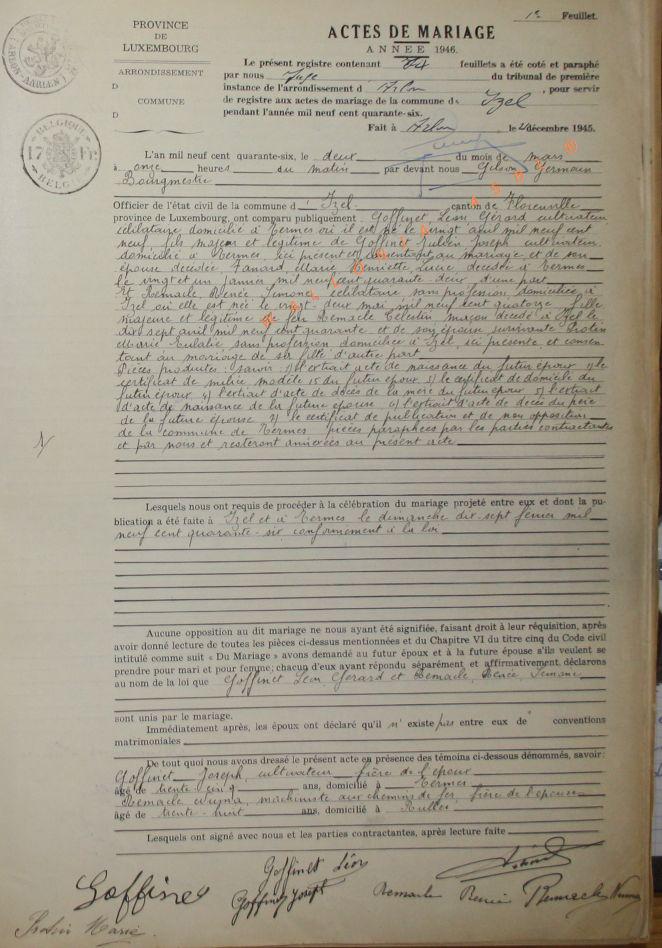 1e Feuillet.
PROVINCE
DE
LUXEMBOURG
ARRONDISSEMENT
D
COMMUNE
D
ACTES DE MARIAGE
ANNÉE 1946.
Le présent registre contenant dix feuillets a été coté et paraphé
par nous Juge du tribunal de première
instance de l'arrondissement d' Arlon, pour servir
de registre aux actes de mariage de la commune d Izel
pendant l'année mil neuf cent quarante-six.
Fait à Arlon, le décembre 1945.
BELGIQUE
BELGIE
L'an mil neuf cent quarante-six, le deux du mois de mars
à onze heures du matin par devant nous Gilson Germain
Bourgmestre
Officier de l'état civil de la commune d' Izel canton de Florenville
province de Luxembourg, ont comparu publiquement Goffinet, Léon Gérard cultivateur
célibataire domicilié à Termes où il est né le vingt avril mil neuf cent
neuf, fils majeur et légitime de Goffinet Joseph cultivateur
domicilié à Termes, ici présent et consentant au mariage et de son
épouse décédée, Fanard, Marie Henriette Lucie, décédée à Termes
le vingt et un janvier mil neuf cent quarante deux d'une part
Et Remacle Renée Simone, célibataire sans profession domiciliée à
Izel où elle est née le vingt-deux mai mil neuf cent quatorze fille
majeure et légitime de feu Remacle Célestin maçon décédé à Izel le
dix sept avril mil neuf cent quarante et de son épouse survivante Protin
Marie Eulalie sans profession domiciliée à Izel, ici présente et consen
tant au mariage de sa fille d'autre part
Pièces produites: savoir: 1) l'extrait acte de naissance du futur époux 2) le
certificat de milice modèle 15 du futur époux 3) le certificat de domicile du
futur époux 4) l'extrait d'acte de décès de la mère du futur époux 5) l'extrait
d'acte de naissance de la future épouse 6) l'extrait d'acte de décès du père
de la future épouse 7) le certificat de publication et de non opposition
de la commune de Termes pièces paraphées par les parties contractantes
et par nous et resteront annexées au présent acte
Lesquels nous ont requis de procéder à la célébration du mariage projeté entre eux et dont la pu-
blication a été faite à Izel et à Termes le dimanche dix-sept février mil
neuf cent quarante-six conformément à la loi
Aucune opposition au dit mariage ne nous ayant été signifiée, faisant droit à leur réquisition, après
avoir donné lecture de toutes les pièces ci-dessus mentionnées et du Chapitre VI du titre cinq du Code civil
intitulé comme suit « Du Mariage » avons demandé au futur époux et à la future épouse s'ils veulent se
prendre pour mari et pour femme; chacun d'eux ayant répondu séparément et affirmativement, déclarons
au nom de la loi que Goffinet Léon Gérard et Remacle, Renée, Simone
sont unis par le mariage.
Immédiatement après, les époux ont déclaré qu'il n'existe pas entre eux de conventions
matrimoniales
De tout quoi nous avons dressé le présent acte en présence des témoins ci-dessous dénommés, savoir:
Goffinet Joseph, cultivateur frère de l'époux
âgé de trente cinq ans, domicilié à Termes
Remacle machiniste aux chemins de fer, frère de l'épouse
âgé de trente-huit ans, domicilié à Rulles
Lesquels ont signé avec nous et les parties contractantes, après lecture faite
Goffinet Léon
Goffinet
Goffinet Joseph
Remacle Renée
Remacle
Protin Marie